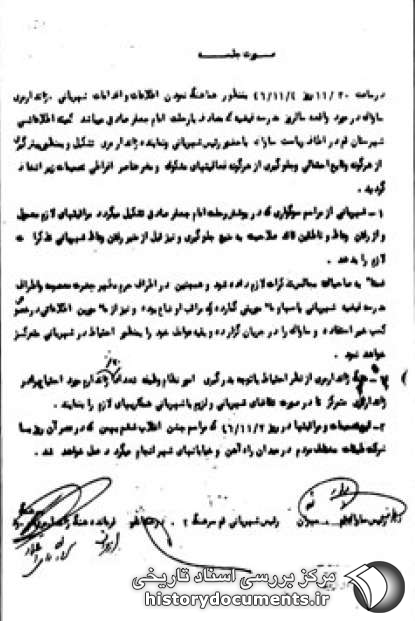 صورت جلسه
در ساعت ۱۱/۳۰ روز ۴۶/۱۱/۴ بمنظور هماهنگ نمودن اطلاعات و اقدامات شهربانی ـ ژاندارمری
ساواک در مورد واقعه سالروز مدرسه فیضیه که مصادف با رحلت امام جعفر صادق میباشد کمیته اطلاعاتی
شهرستان قم در اطاق ریاست ساواک با حضور رئیس شهربانی و نماینده ژاندارمری تشکیل و بمنظور پیش گیری
از هرگونه وقایع احتمالی و جلوگیری از هرگونه فعالیتهای مشکوک و مضر عناصر افراطی تصمیمات زیر اتخاذ
گردید .
۱ ـ شهربانی از مراسم سوگواری که در رحلت امام جعفر صادق تشکیل میگردد مراقبتهای لازم معمول
و از رفتن وعاظ و ناطقین فاقد صلاحیت به منبر جلوگیری و نیز قبل از منبر رفتن وعاظ شهربانی تذکرات
لازم را بدهد .
ضمناً به صاحبان مجالس تذکرات لازم داده شود و همچنین در اطراف حرم مطهر حضرت معصومه و اطراف
مدرسه فیضیه شهربانی مامورینی گمارده که مراقب اوضاع بوده و نیز از مامورین اطلاعاتی در
کسب خبر استفاده و ساواک را در جریان گزارده و بقیه عوامل خود را بمنظور احتیاط در شهربانی متمرکز
خواهد نمود .
۲ ـ ژاندارمری از نظر احتیاط با توجه بدرگیری امور نظام وظیفه تعداد ژاندارم خود را در
ژاندارمری متمرکز تا در صورت تقاضای شهربانی و لزوم با شهربانی همکاریهای لازم را بنمایند .
۳ ـ تصمیمات و مراقبتها در روز ۴۶/۱۱/۶ که مراسم جشن انقلاب ششم بهمن که در عصر آن روز با
شرکت طبقات مختلف مردم در میدان راه آهن و خیابانهای شهر انجام میگردد عمل خواهد شد .
رئیس ساواک قم ـ مهران رئیس شهربانی قم سرهنگ ۲ فرمانده هنگ ژاندارمری
مرکز بررسی اسناد تاریخی
historydocuments.ir